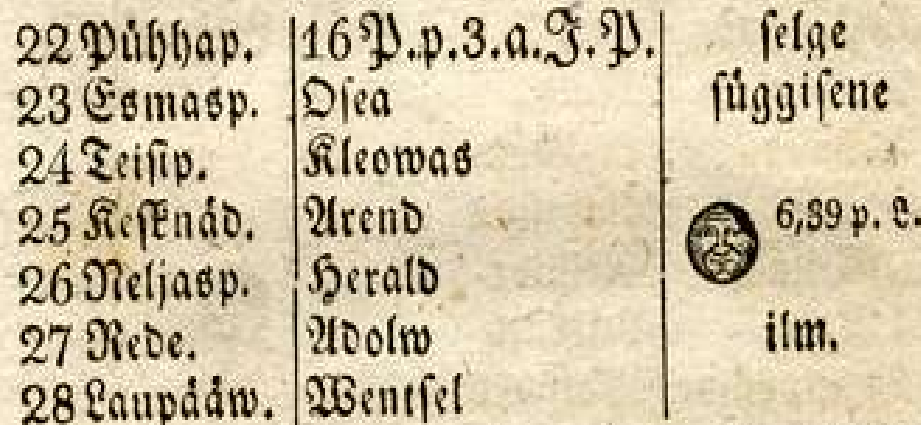 22 Pühhap. 16 P. p. 3. a. J. P. selge
23 Esmasp. Osea süggisene
24 Teisip. Kleowas
25 Kesknäd. Arend 6,39 p. L.
26 Neljasp. Herald
27 Rede. Adolw ilm.
28 Laupääw. Wentsel